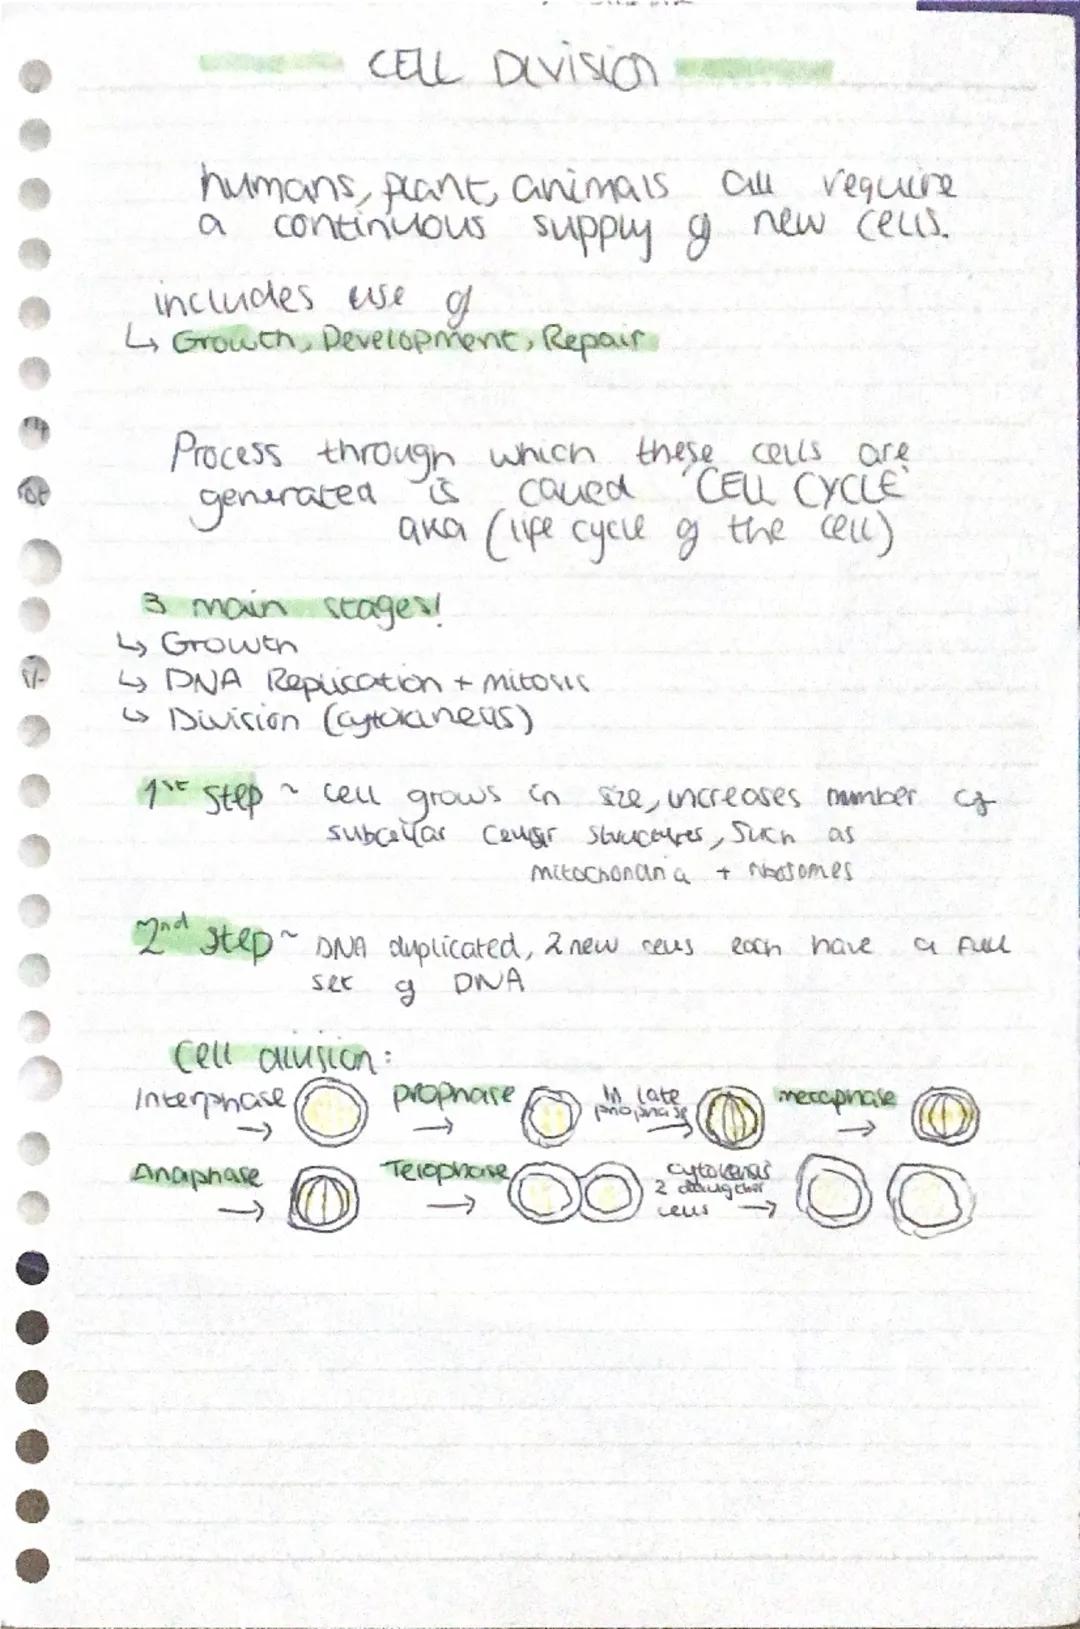 CELL Division
humans, plant, animals all require
a continuous supply of new cells.
includes use of
↳ Growth, Development, Repair
Process through which these cells are
generated is called 'CELL CYCLE'
aka (life cycle of the cell)
3 main stages!
↳ Growth
↳ DNA Replication + mitosis
↳ Division (cytokinesis)
1st step ~ cell grows in size, increases number of
subcellar structures, such as
mitochondria + ribosomes
2nd step ~ DNA duplicated, 2 new cells each have a full
set of DNA
Cell division:
Interphase → prophase → In late prophase → metaphase →
Anaphase → Telophase → cytokensis 2 daughter cells →